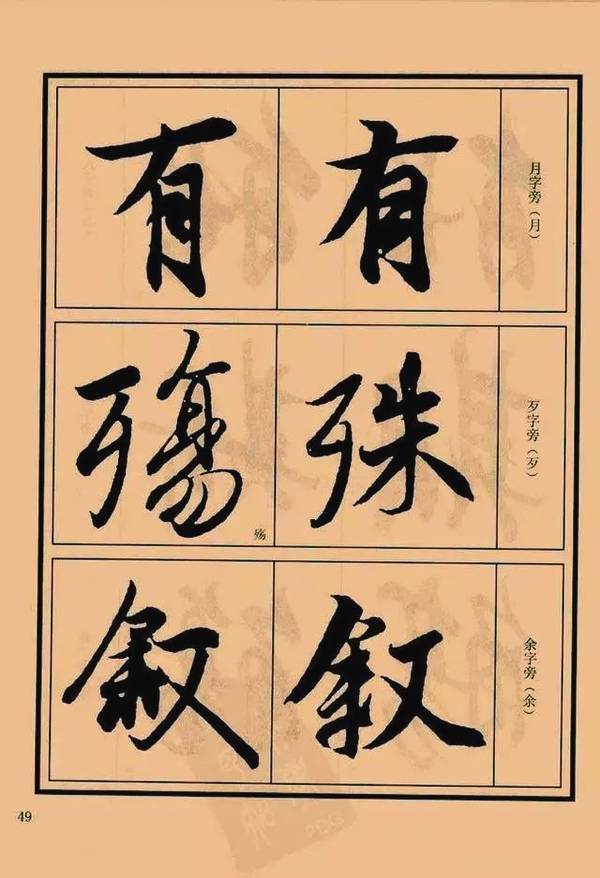 月字旁（月）
有
有
歹字旁（歹）
殊
殇
殇
余字旁（余）
叙
叙
49